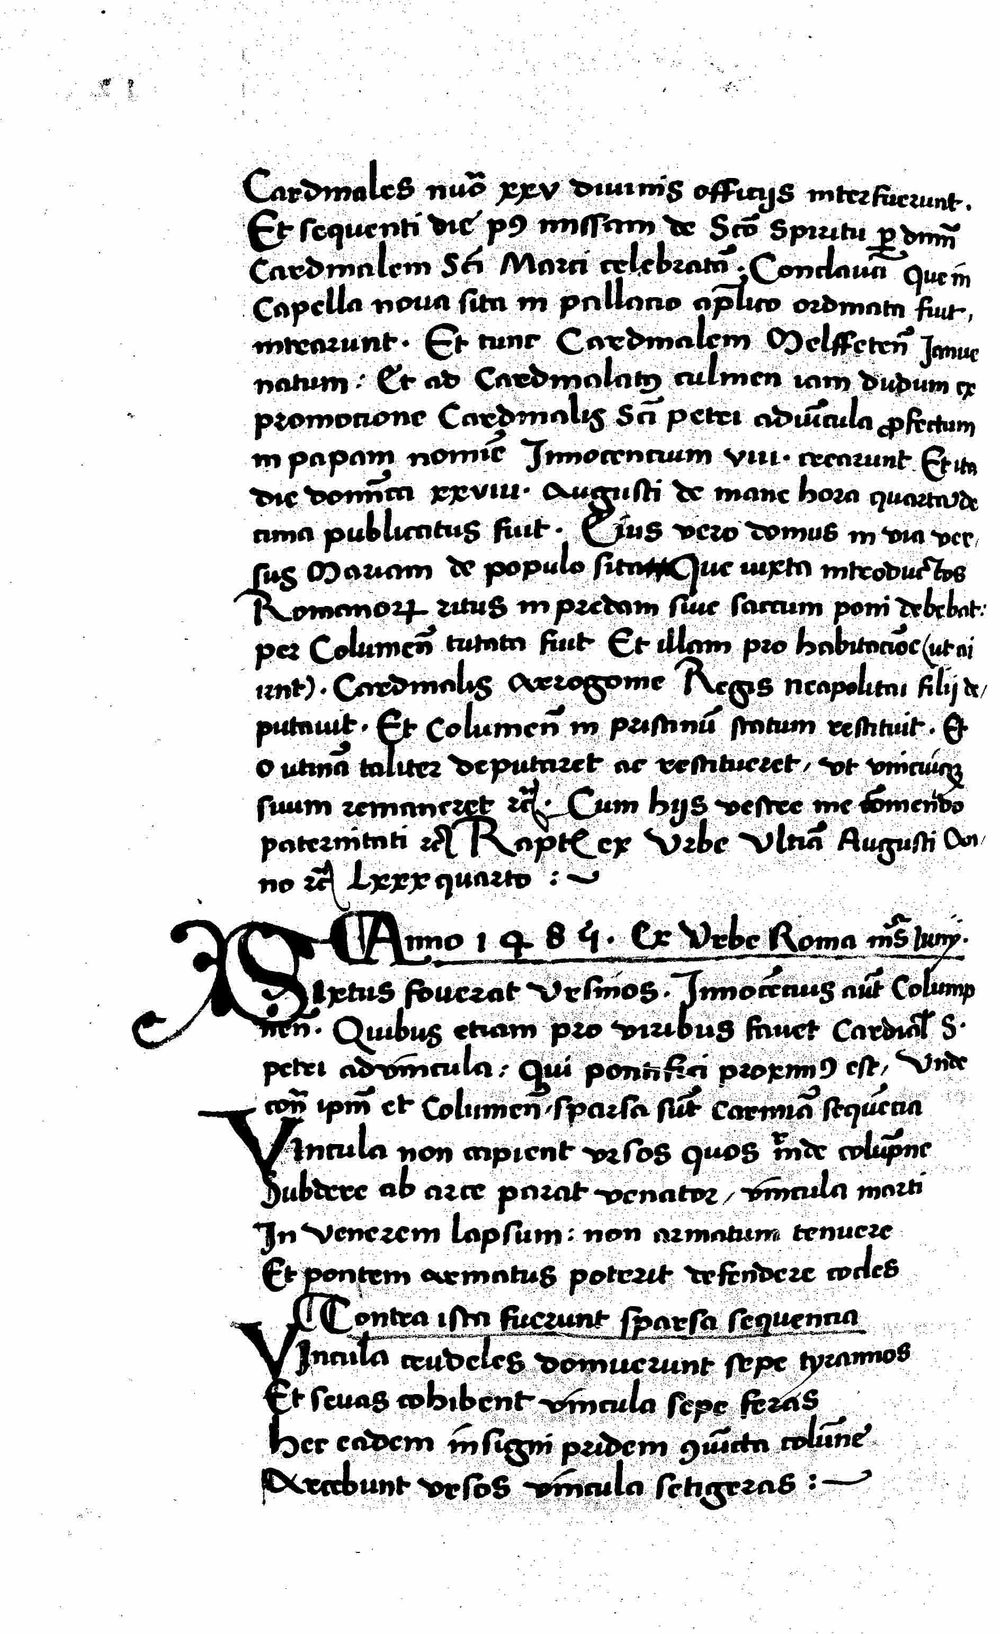 Cardinales nūo xxv diuinis officijs interfuerunt.
Et sequenti die pꝰ missam de Scō Spiritu ꝑ dnm̄
Cardinalem Sci Marci celebratā. Conclaue Que in
Capella noua sita in pallacio aplico ordinata fuit,
intrarunt. Et tunc Cardinalem Melffeten̄ Janue
natum: Et ad Cardinalatꝰ culmen iam dudum ex
promocione Cardinalis Sci petri aduīcula ꝓfectum
in papam nomīe Innocencium viii. crearunt Et ita
die domīca xxviii. Augusti de mane hora quartade
cima publicatus fuit. Eius vero domus in via ver,
sus Mariam de populo sita Que iuxta introductos
Romanorꝝ ritus in predam siue saccum poni debebat:
per Columen̄ tutata fuit Et illam pro habitacōe (ut ai
unt). Cardinalis Arrogonie Regis neapolitai filij de/
putauit. Et Columen̄ in pristinū statum restituit. Et
O utinā taliter deputaret ac restitueret, vt vnicuiqꝫ
suum remaneret rc̄. Cum hijs vestre me cōmendo
paternitati rc̄ Rapt ex Vrbe Vltiā Augusti An,
no rc̄ Lxxx quarto :~
Anno 1485. Ex Vrbe Roma mēs Iunij.
Sixtus fouerat Vrsinos. Innocēcius aūt Colump
nen̄. Quibus etiam pro viribus fauet Cardiāl S.
petri advīncula: Qui pontifici proximꝰ est, Vnde
con̄ ipm̄ et Columen̄, sparsa sūt carmīa sequēcia
Vincula non capient vrsos quos īnde colūpne
Subdere ab arce parat venator, vīncula marti
In Venerem lapsum: non armatum tenuere
Et pontem armatus poterit defendere cocles
Contra ista fuerunt sparsa sequencia
Vincula crudeles domuerunt sepe tyrannos
Et seuas cohibent vīncula sepe feras
Hec eadem īnsigni pridem ꝯiūcta colūne
Arcebunt vrsos vīncula setigeras :~